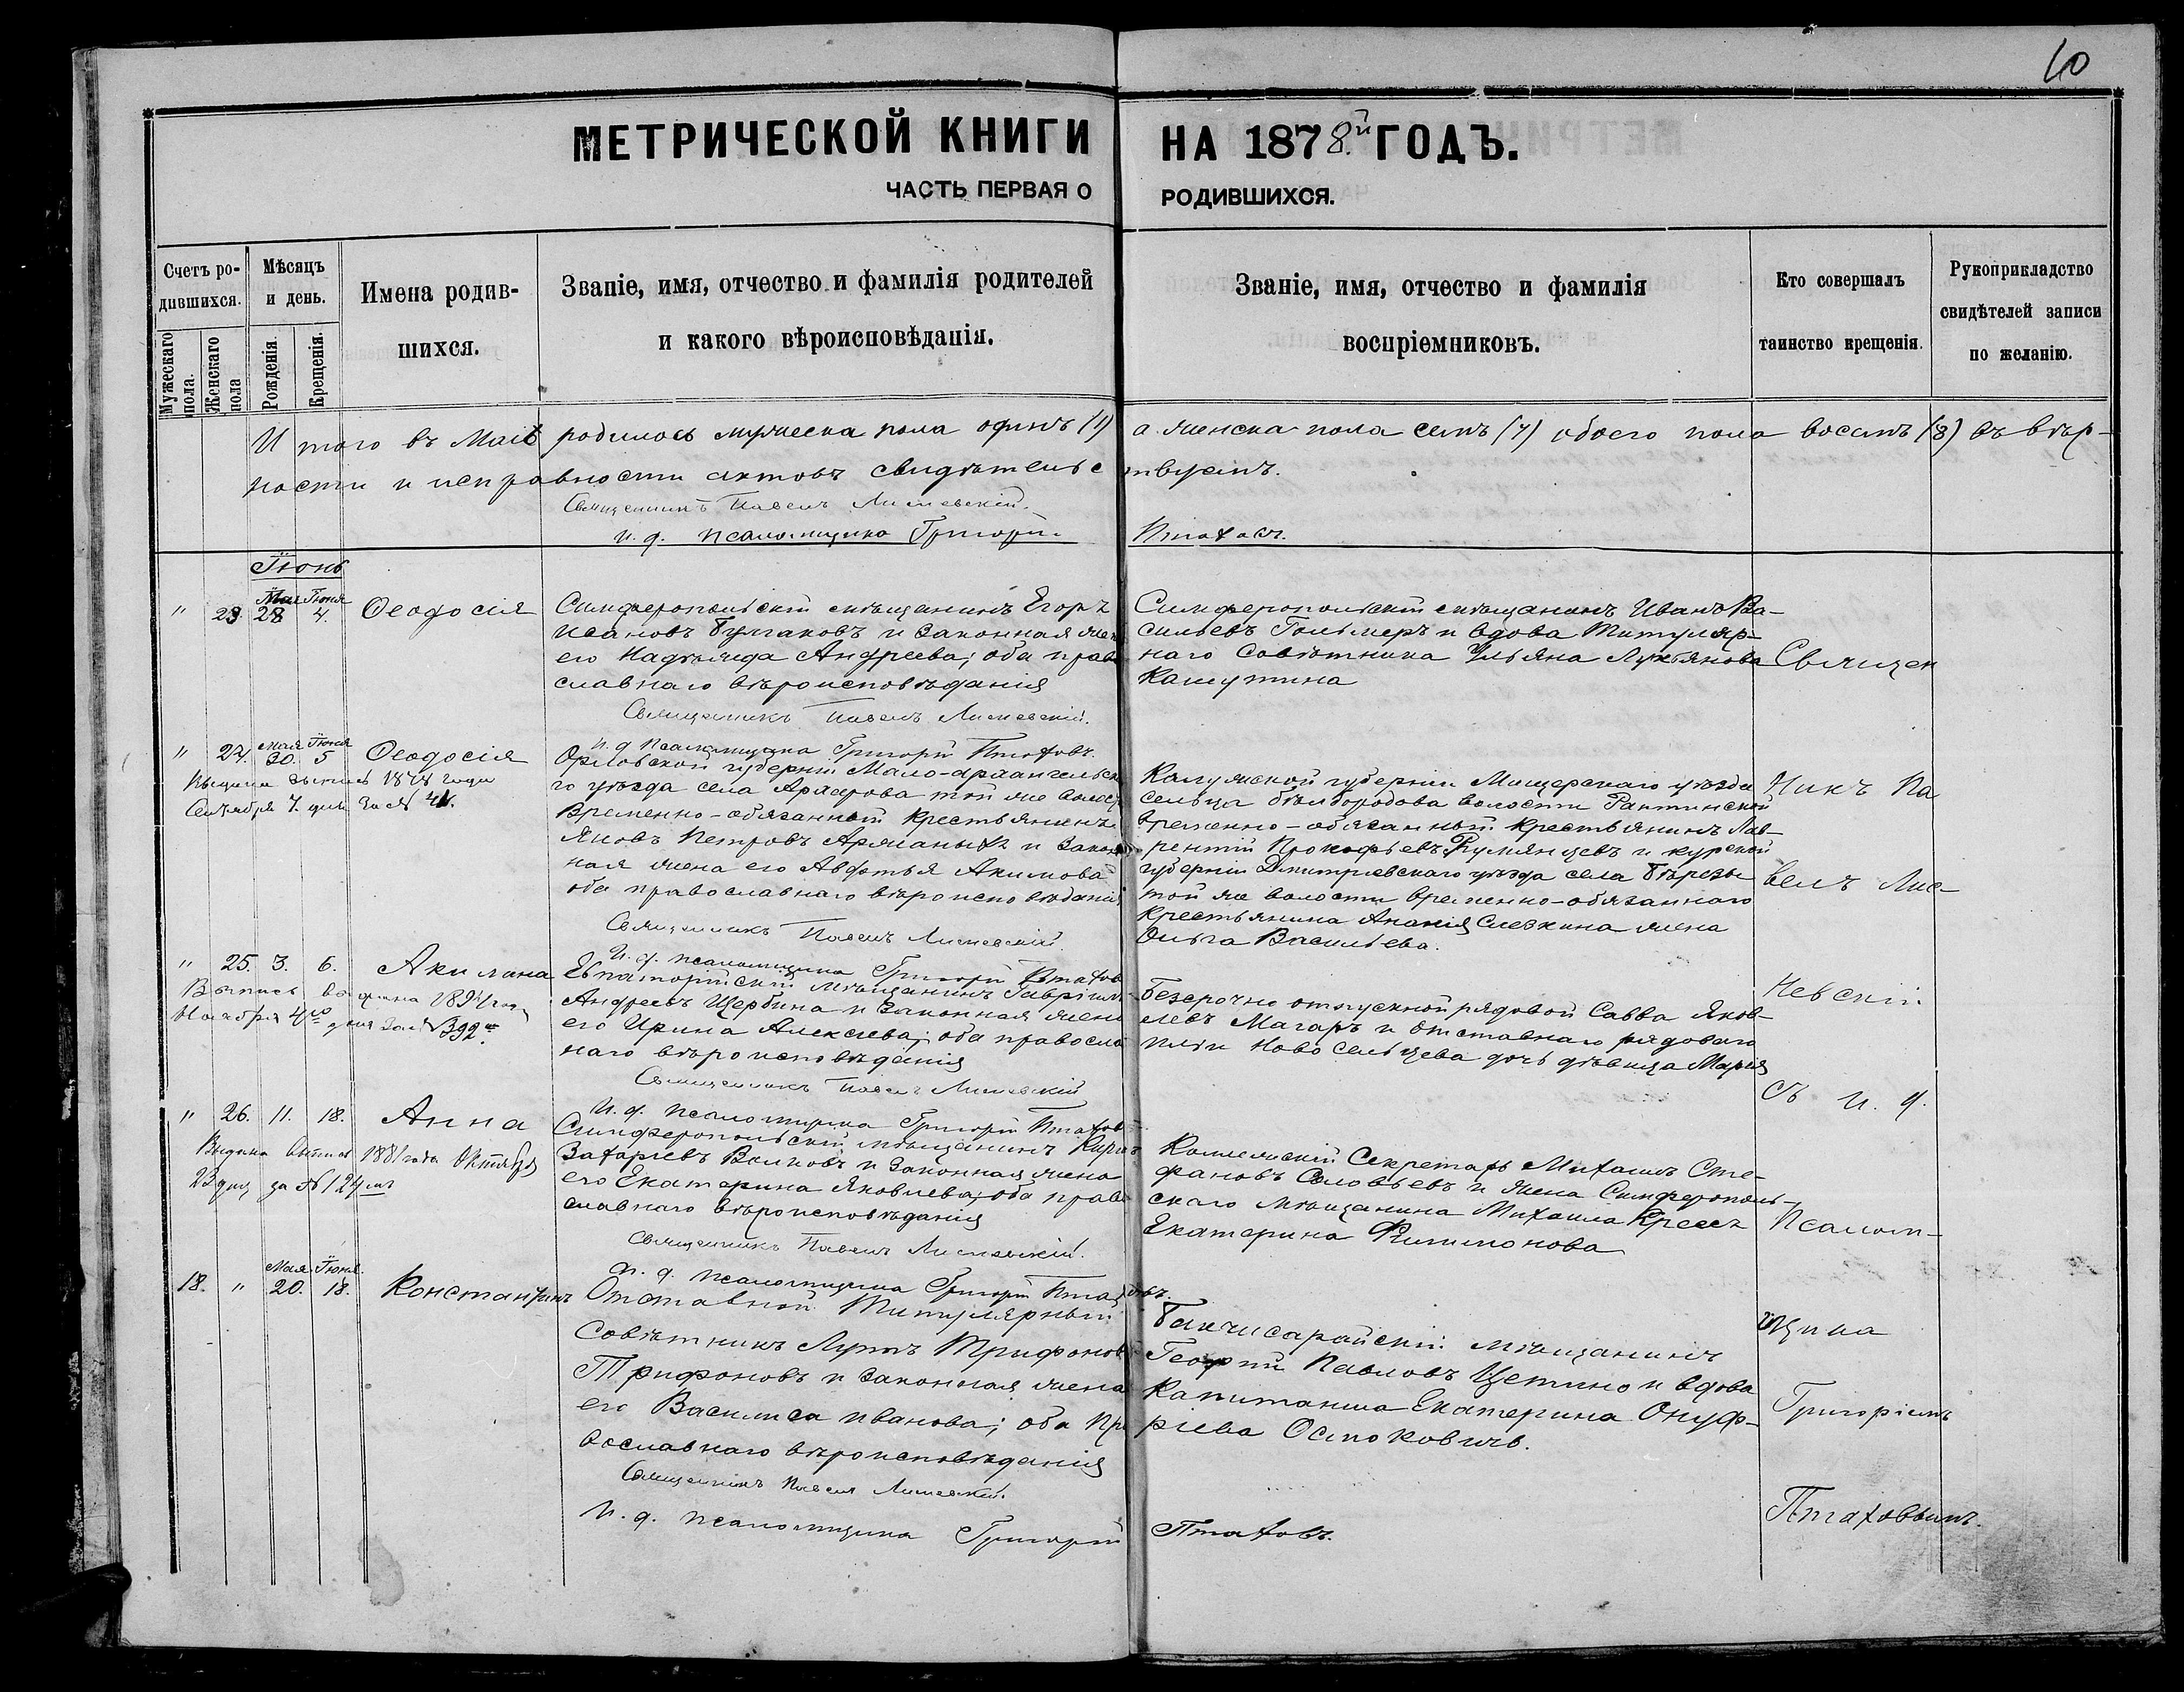 10
МЕТРИЧЕСКОЙ КНИГИ НА 1878й ГОДЪ.
ЧАСТЬ ПЕРВАЯ О РОДИВШИХСЯ.
Счетъ родившихся.
Мужескаго пола.
Женскаго пола
Мѣсяцъ и день.
Рожденія.
Крещенія.
Имена родив-
шихся.
Званіе, имя, отчество и фамилія родителей
и какого вѣроисповѣданія.
Званіе, имя, отчество и фамилія
воспріемниковъ.
Кто совершалъ
таинство крещенія.
Рукоприкладство
свидѣтелей записи
по желанію.
Итого въ Маѣ родилось мужеска пола одинъ (1) а женска пола семь (7) обоего пола восемь (8) въ вѣр-
ности и исправности актовъ свидѣтельствуемъ.
Священникъ Павелъ
и. д. псаломщика Григорій Птаховъ.
Іюнь
Мая Іюня
" 23. 28 4. Ѳеодосія
Симферопольскій мѣщанинъ Егоръ
Ивановъ Булгаковъ и законная жен
его Надежда Андреева; оба право
славнаго вѣроисповѣданія
Священникъ Павелъ
и. д. псаломщика Григорій Птаховъ.
Симферопольскій мѣщанинъ Иванъ Ва-
сильевъ Гольмеръ и вдова Титуляр-
наго Совѣтника Ульяна Лукьянова
Кашутина
Мая Іюня
" 24. 30. 5 Ѳеодосія
Выдана выпись 1878 года
Сентября 7. дня за №
Орловской губерніи Мало-архангельска
го уѣзда села той же волос
Временно-обязанный крестьянинъ
Яковъ Петровъ и закон
ная жена его Авдотья Акимова
оба православнаго вѣроисповѣданія
Священникъ Павелъ
и. д. псаломщика Григорій Птаховъ
Калужской губерніи Мещерскаго уѣзда
сельца волости
временно-обязанный крестьянинъ Лав-
рентій Прокофьевъ Румянцевъ и курской
губерніи Дмитріевскаго уѣзда села
той же волости временно-обязаннаго
крестьянина Ананія жена
Ольга Васильева.
" 25. 3. 6. Акилина
Выпись выдана 1894 года
Ноября 4го дня за № 392
Евпаторійскій мѣщанинъ Гавріилъ
Андреевъ Щербина и законная жена
его Ирина Алексѣева; оба правосла
наго вѣроисповѣданія
Священникъ Павелъ
и. д. псаломщика Григорій Птаховъ
Безсрочно отпускной рядовой Савва Яков-
левъ Магаръ и отставнаго рядоваго
Ильи Новосельцева дочь дѣвица Марія
" 26. 11. 18. Анна
Выдана выпись 1881 года Октября
23 дня за № 124
Симферопольскій мѣщанинъ
Захаріевъ Волковъ и законная жена
его Екатерина Яковлева; оба право
славнаго вѣроисповѣданія
Священникъ Павелъ
и. д. псаломщика Григорій Птаховъ.
Коллежскій Секретарь Михаилъ Сте-
фановъ Соловьевъ и жена Симферополь-
скаго мѣщанина Михаила
Екатерина Филимонова
Мая Іюня.
18. " 20. 18. Константинъ
Отставной Титулярный
Совѣтникъ Трифонов
Трифоновъ и законная жена
его Василиса Иванова; оба пра
вославнаго вѣроисповѣданія
Священникъ Павелъ
и. д. псаломщика Григорій Птаховъ.
Бахчисарайскій мѣщанинъ
Георгій Павловъ и вдова
Капитанша Екатерина Онуф-
ріева
Священ
никъ Па
велъ Лис-
невскій
съ и. д.
Псалом-
щика
Григоріемъ
Птаховымъ.